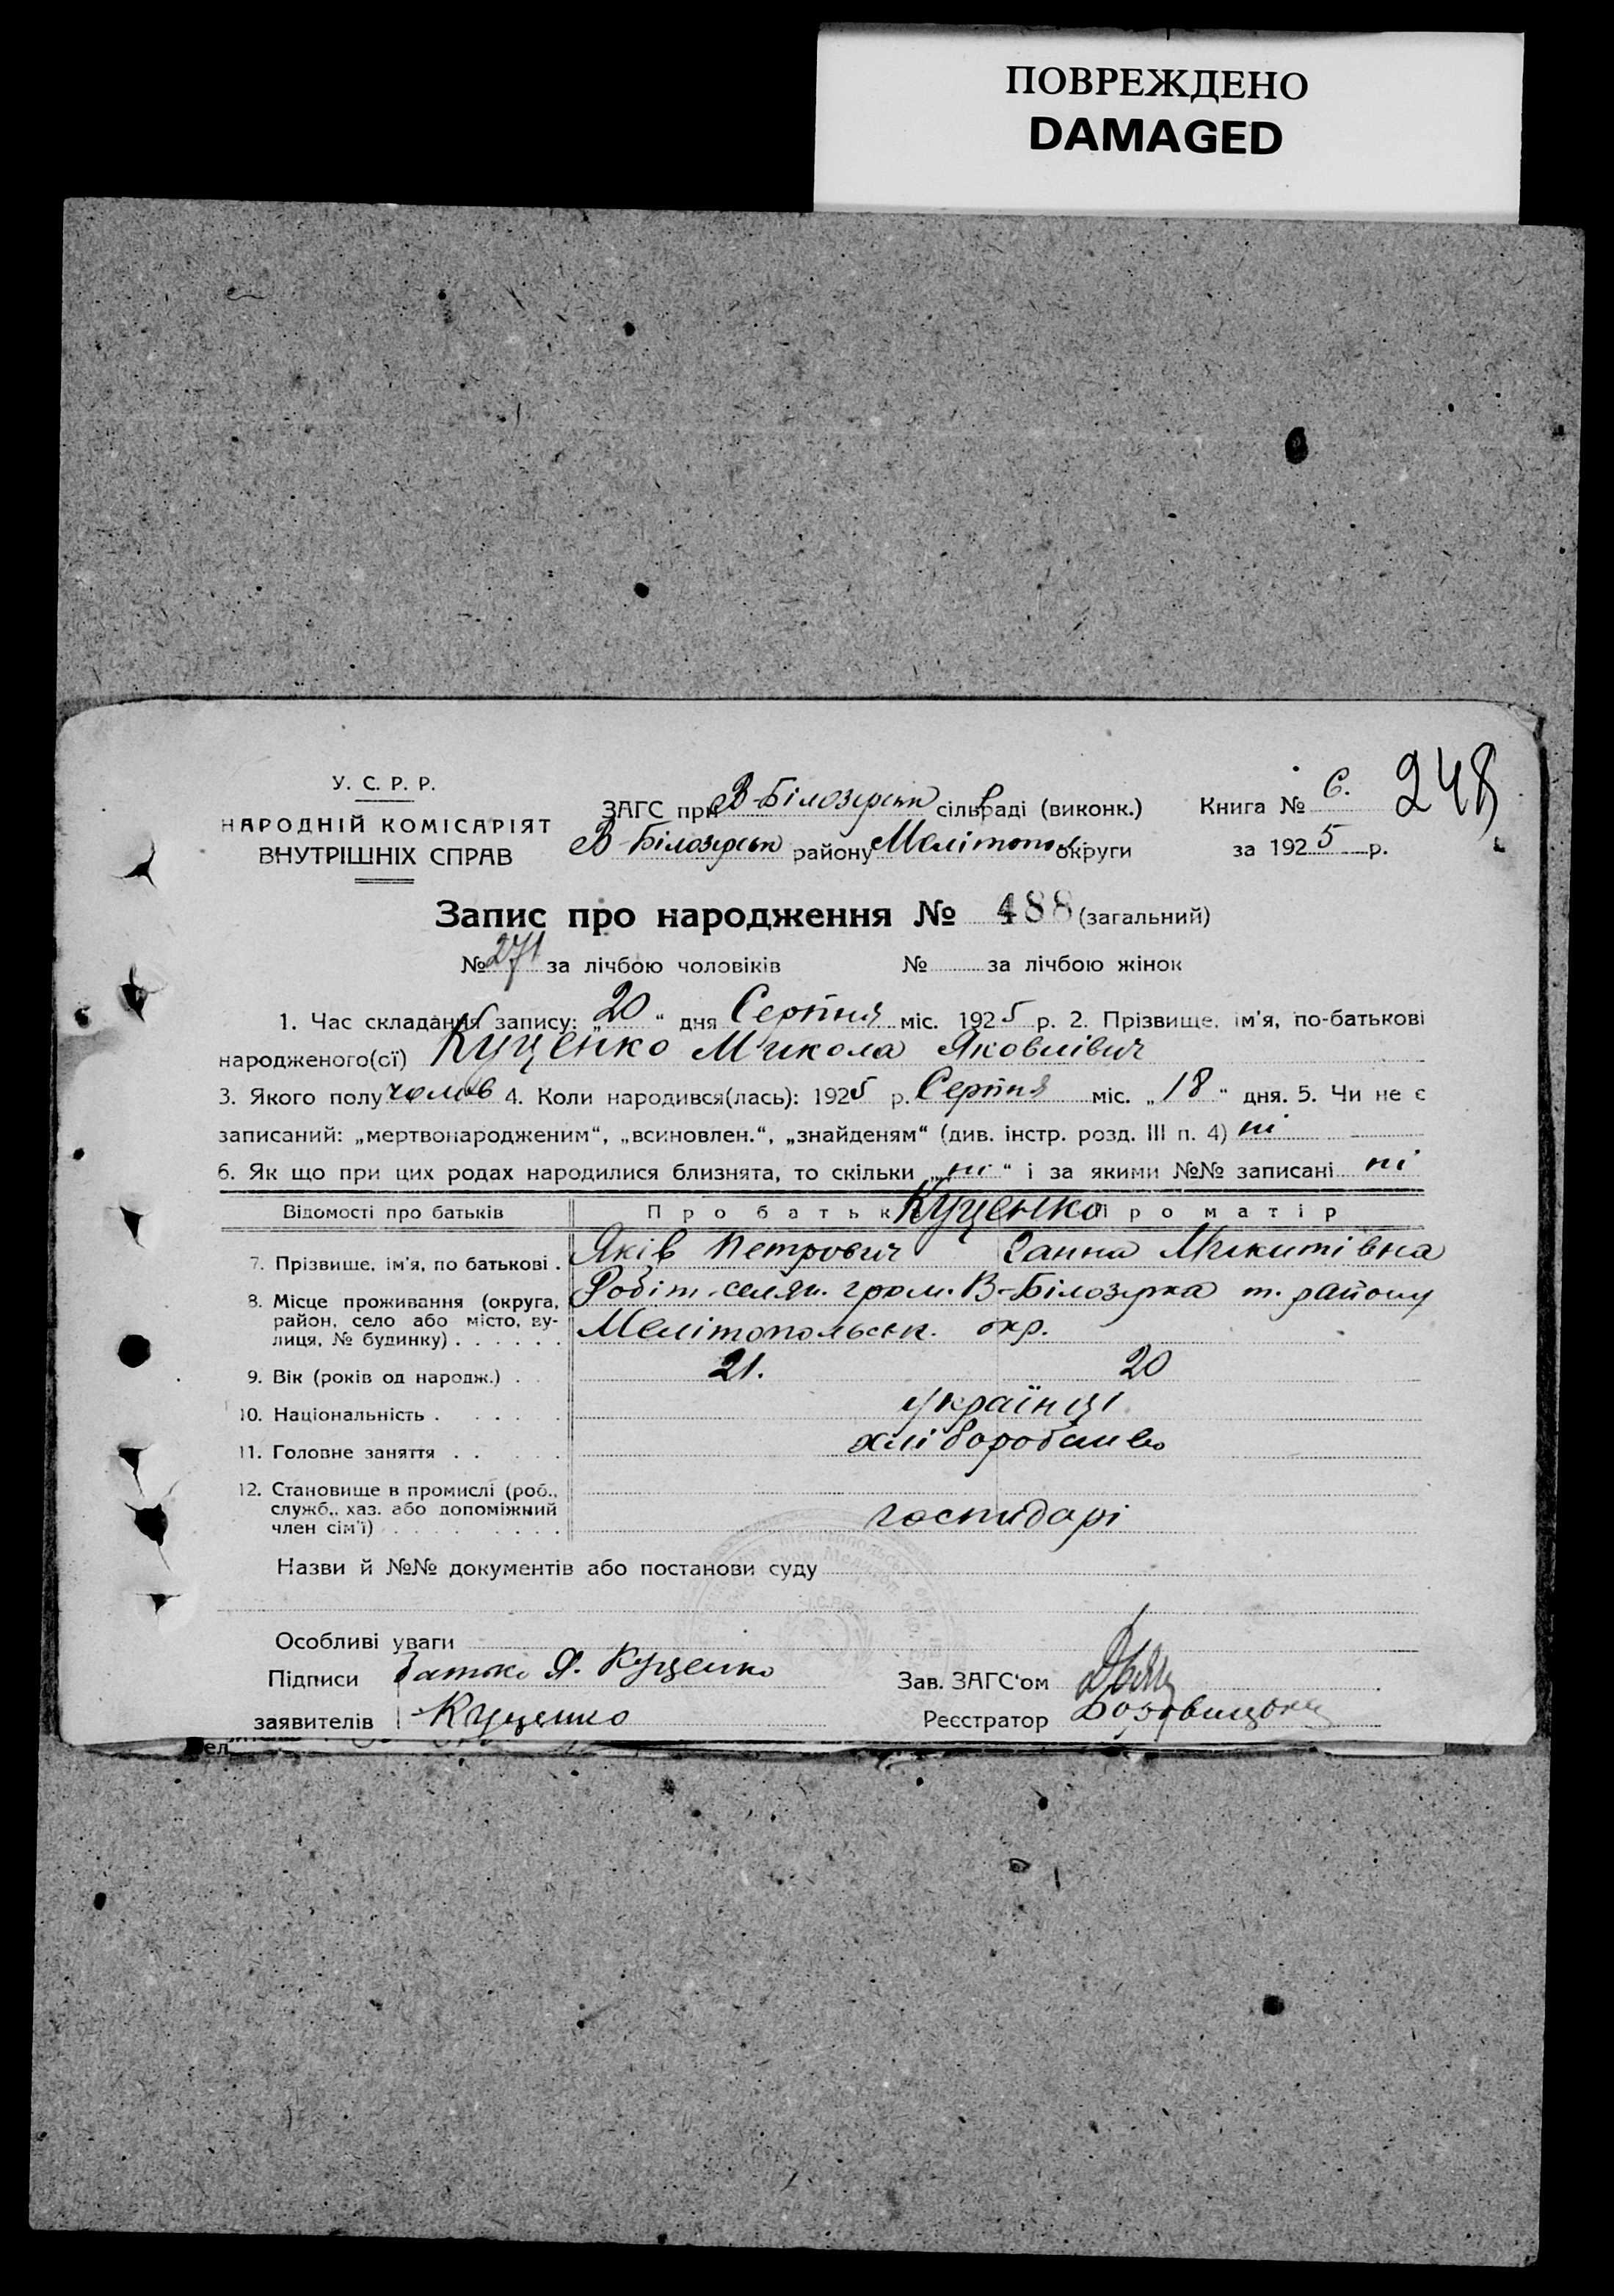 ПОВРЕЖДЕНО
DAMAGED
248
У. С. Р. Р.
НАРОДНІЙ КОМІСАРІЯТ
ВНУТРІШНІХ СПРАВ
ЗАГС при В-Білозерськ сільраді (виконк.)
Книга № 6.
В-Білозерськ району Мелітопол округи
за 1925 р.
Запис про народження № 488 (загальний)
№ 271 за лічбою чоловіків № за лічбою жінок
1. Час складання запису: „20“ дня Серпня міс. 1925 р. 2. Прізвище, ім'я, по-батькові
народженого(ої) Куценко Микола Яковлівич
3. Якого полу чолов 4. Коли народився(лась): 1925 р. Серпня міс. „18“ дня. 5. Чи не є
записаний: „мертвонародженим“, „всиновлен.“, „знайденям“ (див. інстр. розд. III п. 4) ні
6. Як що при цих родах народилися близнята, то скільки „ні“ і за якими №№ записані ні
Відомості про батьків Про батька Куценко Про матір
7. Прізвище, ім'я, по батькові . Яків Петрович Ганна Микитівна
8. Місце проживання (округа, район, село або місто, вулиця, № будинку) . . . . . . Робіт.-селян. гром. В-Білозерка т. району
Мелітопольськ. окр.
9. Вік (років од народж.) . 21. 20
10. Національність . . . . . українці
11. Головне заняття . . . . хліборобство
12. Становище в промислі (роб., служб., хаз. або допоміжний член сім'ї) . . . . . . . . господарі
Назви й №№ документів або постанови суду
Особливі уваги
Підписи Батько Я. Куценко
Зав. ЗАГС'ом
заявителів Куценко
Реєстратор